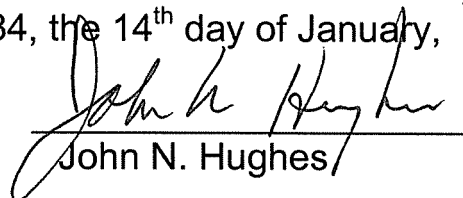 34, the 14th day of January,
John N Hughes
John N. Hughes